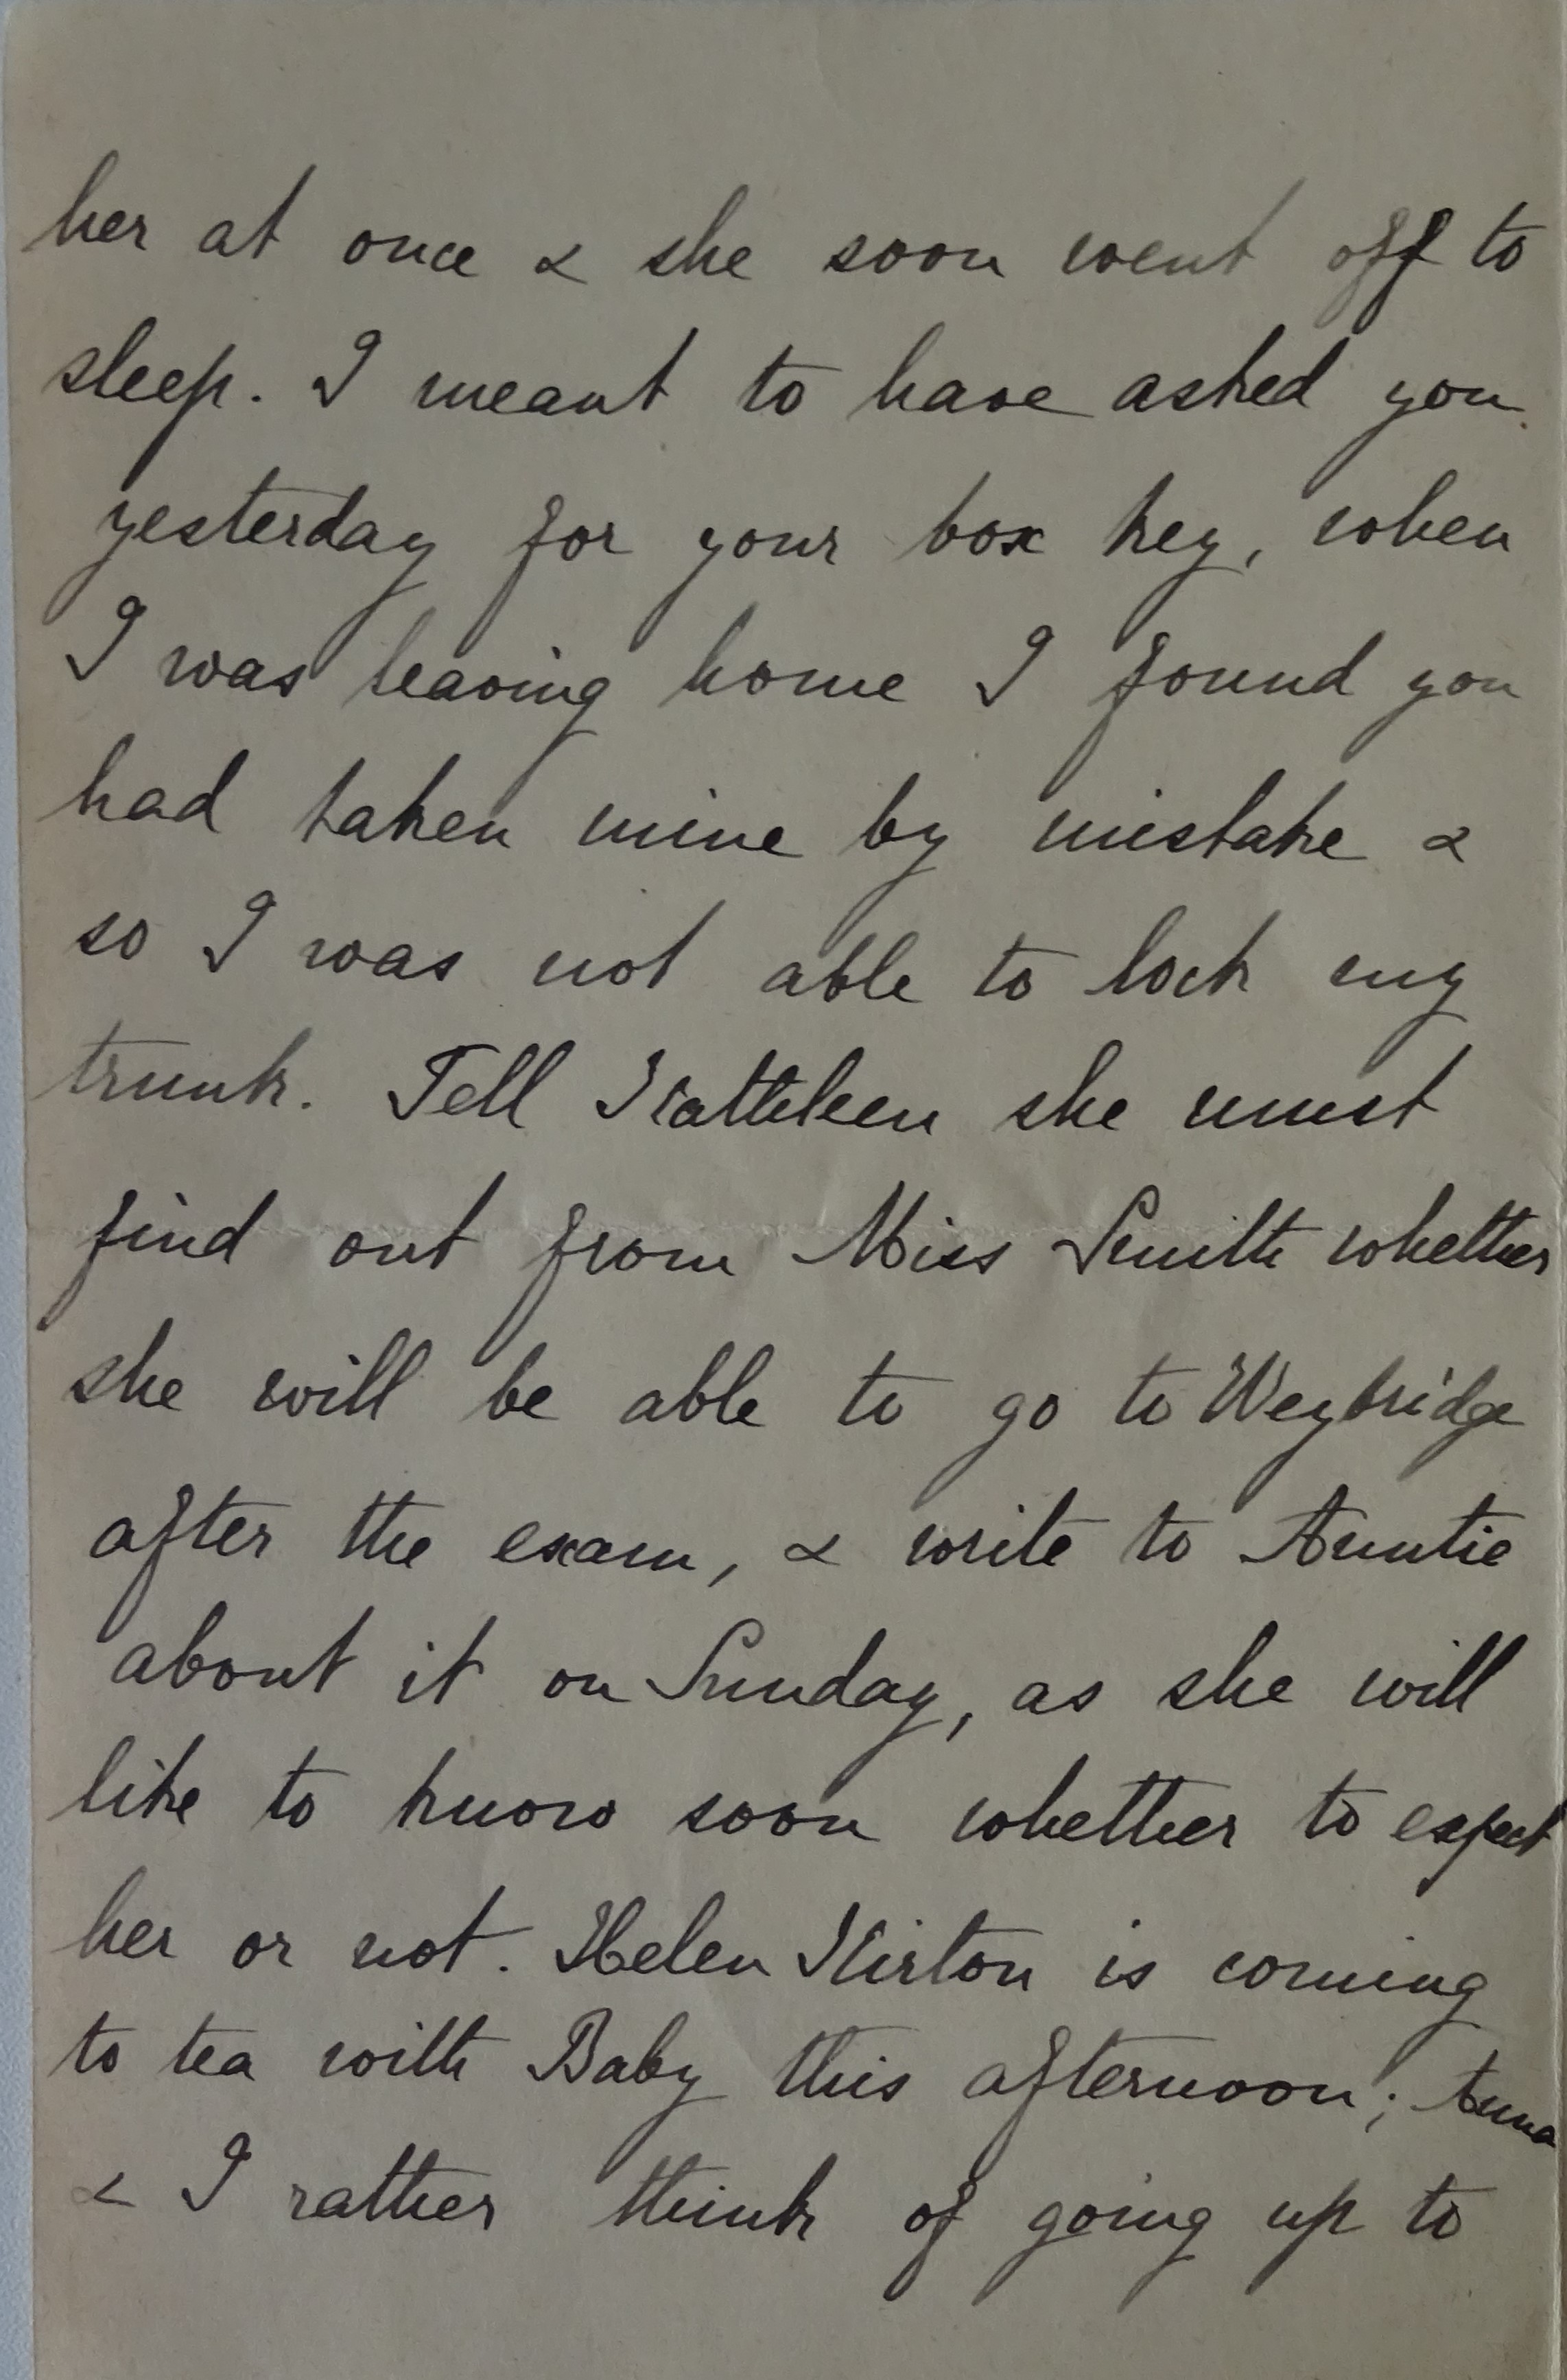 her at once & she soon went off to
sleep. I meant to have asked you
yesterday for your box key, when
I was leaving home I found you
had taken mine by mistake &
so I was not able to lock my
trunk. Tell Kathleen she must
find out from Miss Smith whether
she will be able to go to Weybridge
after the exam, & write to Auntie
about it on Sunday, as she will
like to know soon whether to expect
her or not. Helen Kirton is coming
to tea with Baby this afternoon; Anna
& I rather think of going up to